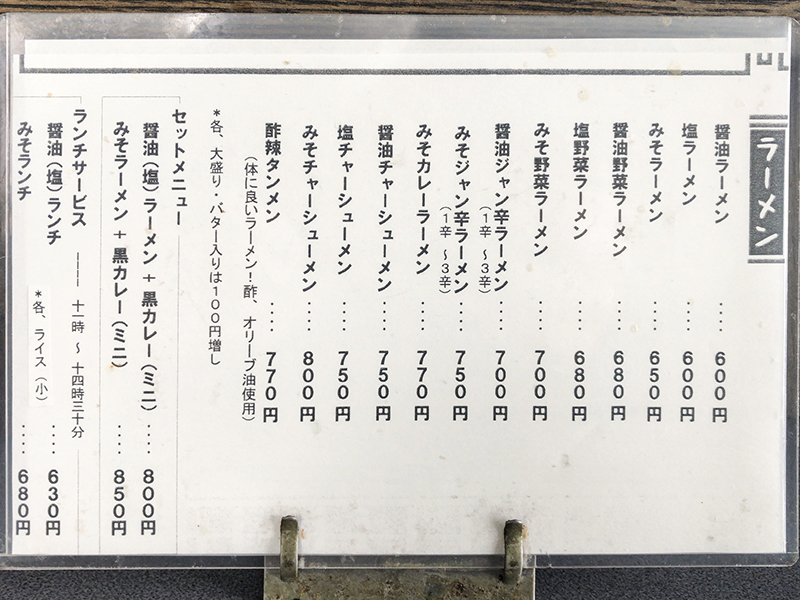 ラーメン
醤油ラーメン ‥‥ 600円
塩ラーメン ‥‥ 600円
みそラーメン ‥‥ 650円
醤油野菜ラーメン ‥‥ 680円
塩野菜ラーメン ‥‥ 680円
みそ野菜ラーメン ‥‥ 700円
醤油ジャン辛ラーメン ‥‥ 700円
(1辛 ～3辛)
みそジャン辛ラーメン ‥‥ 750円
(1辛 ～3辛)
みそカレーラーメン ‥‥ 770円
醤油チャーシューメン ‥‥ 750円
塩チャーシューメン ‥‥ 750円
みそチャーシューメン ‥‥ 800円
酢辣タンメン ‥‥ 770円
(体に良いラーメン!酢、オリーブ油使用)
*各、大盛り・バター入りは100円増し
セットメニュー
醤油(塩)ラーメン + 黒カレー(ミニ) ‥‥ 800円
みそラーメン + 黒カレー(ミニ) ‥‥ 850円
ランチサービス ―― 十一時 ～ 十四時三十分
醤油(塩)ランチ ‥‥ 630円
*各、ライス(小)
みそランチ ‥‥ 680円